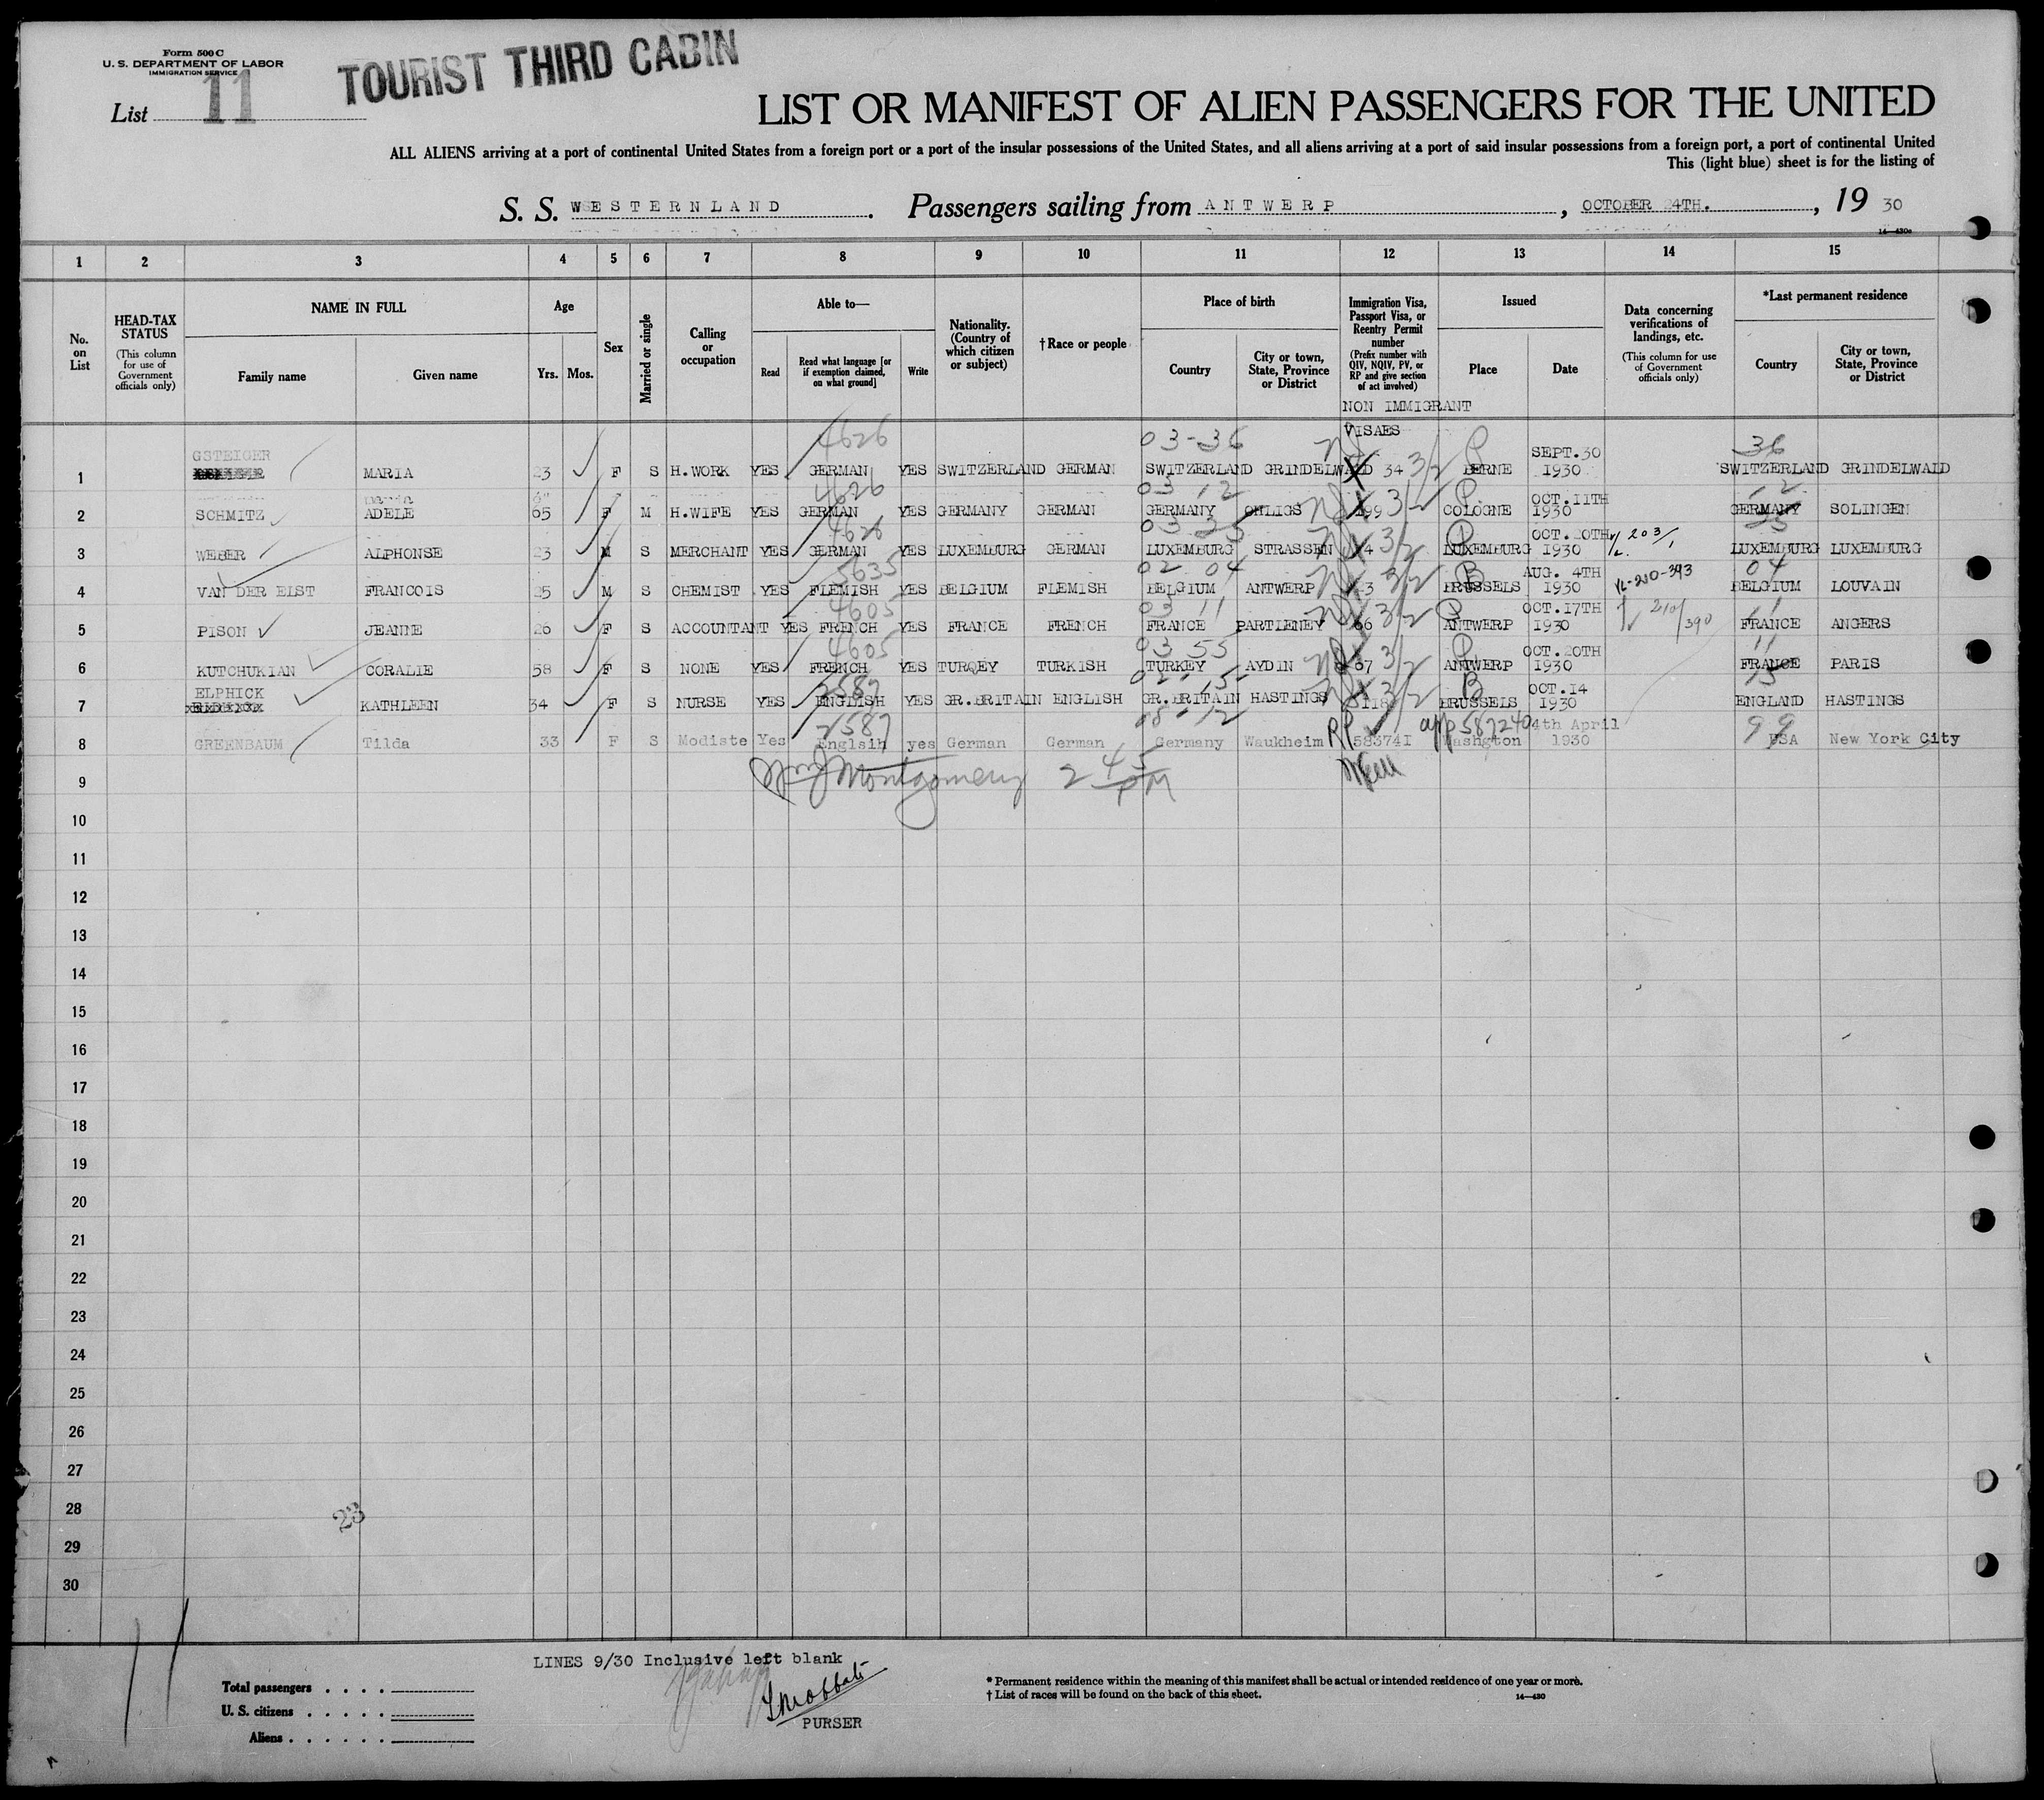 Form 500 C
U. S. DEPARTMENT OF LABOR
IMMIGRATION SERVICE
List 11
TOURIST THIRD CABIN
LIST OR MANIFEST OF ALIEN PASSENGERS FOR THE UNITED
ALL ALIENS arriving at a port of continental United States from a foreign port or a port of the insular possessions of the United States, and all aliens arriving at a port of said insular possessions from a foreign port, a port of continental United
This (light blue) sheet is for the listing of
S. S. WESTERNLAND. Passengers sailing from ANTWERP, OCTOBER 24TH., 19 30
1 2 3 4 5 6 7 8 9 10 11 12 13 14 15
No. on List
HEAD-TAX STATUS (This column for use of Government officials only)
NAME IN FULL
Family name Given name
Age
Yrs. Mos.
Sex
Married or single
Calling or occupation
Able to—
Read Read what language [or if exemption claimed, on what ground] Write
Nationality. (Country of which citizen or subject)
†Race or people
Place of birth
Country City or town, State, Province or District
Immigration Visa, Passport Visa, or Reentry Permit number (Prefix number with QIV, NQIV, PV, or RP and give section of act involved)
Issued
Place Date
Data concerning verifications of landings, etc. (This column for use of Government officials only)
*Last permanent residence
Country City or town, State, Province or District
NON IMMIGRANT
VISAES
4626 03-36 36
1 GSTEIGER MARIA 23 F S H.WORK YES GERMAN YES SWITZERLAND GERMAN SWITZERLAND GRINDELWALD 34 3/2 BERNE SEPT.30 1930 SWITZERLAND GRINDELWALD
4626 03 12 12
2 SCHMITZ ADELE 65 F M H.WIFE YES GERMAN YES GERMANY GERMAN GERMANY OHLIGS 3/2 COLOGNE OCT.11TH 1930 GERMANY SOLINGEN
4626 03 25 25
3 WEBER ALPHONSE 23 M S MERCHANT YES GERMAN YES LUXEMBURG GERMAN LUXEMBURG STRASSEN 3/2 LUXEMBURG OCT.20TH 1930 LUXEMBURG LUXEMBURG
5635 02 04 04
4 VAN DER ELST FRANCOIS 25 M S CHEMIST YES FLEMISH YES BELGIUM FLEMISH BELGIUM ANTWERP 3/2 BRUSSELS AUG. 4TH 1930 BELGIUM LOUVAIN
4605 03 11 11
5 PISON JEANNE 26 F S ACCOUNTANT YES FRENCH YES FRANCE FRENCH FRANCE PARTHENEY 3/2 ANTWERP OCT.17TH 1930 FRANCE ANGERS
4605 03 55 11
6 KUTCHUKIAN CORALIE 58 F S NONE YES FRENCH YES TURQEY TURKISH TURKEY AYDIN 3/2 ANTWERP OCT.20TH 1930 FRANCE PARIS
2587 02-15 15
7 ELPHICK KATHLEEN 34 F S NURSE YES ENGLISH YES GR.BRITAIN ENGLISH GR.BRITAIN HASTINGS 3/2 BRUSSELS OCT.14 1930 ENGLAND HASTINGS
08-12 99
8 GREENBAUM Tilda 33 F S Modiste Yes Englsih yes German German Germany Waukheim RP 583741 Washgton 4th April 1930 USA New York City
Montgomery 2 45 PM
9
10
11
12
13
14
15
16
17
18
19
20
21
22
23
24
25
26
27
28
29
30
23
11
LINES 9/30 Inclusive left blank
Total passengers
U. S. citizens
Aliens
PURSER
* Permanent residence within the meaning of this manifest shall be actual or intended residence of one year or more.
† List of races will be found on the back of this sheet. 14—430